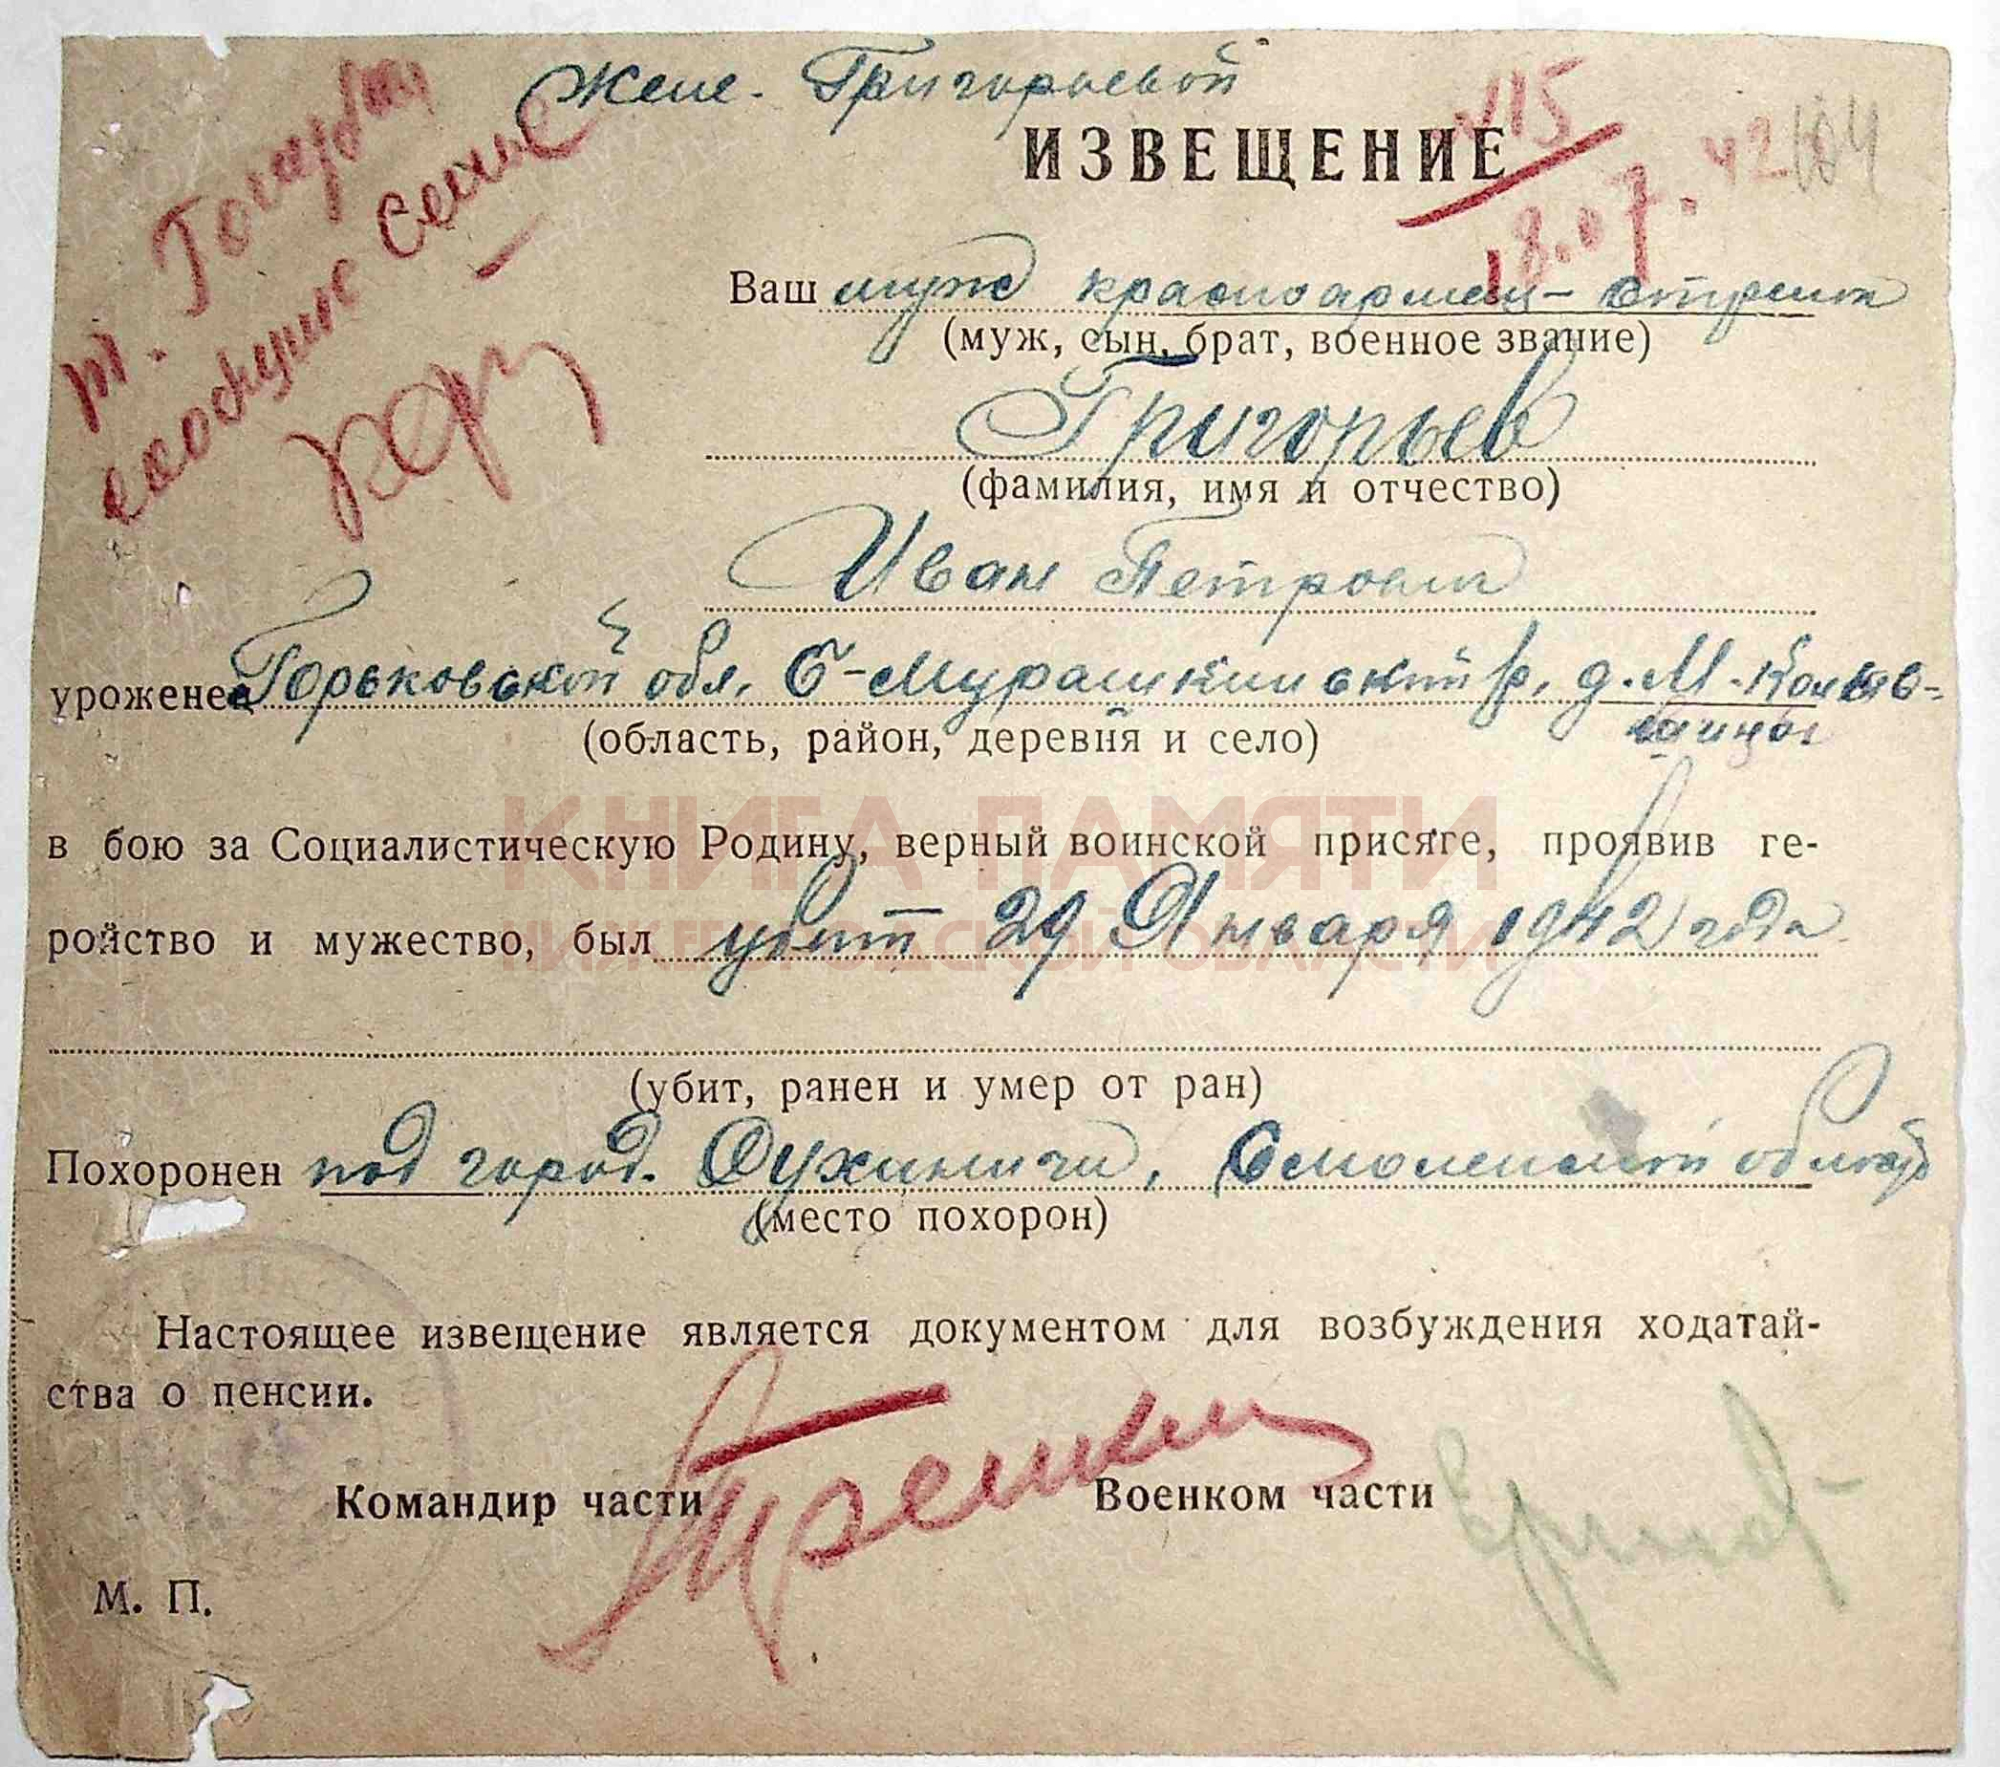 Жене. Григорьевой
ИЗВЕЩЕНИЕ
N15
18.07.42
104
т. Голубки
сообщите семье
Ваш муж красноармеец-стрелок
(муж, сын, брат, военное звание)
Григорьев
(фамилия, имя и отчество)
Иван Петрович
уроженец Горьковской обл. Б-Мурашкинский р. д. М-
(область, район, деревня и село)
КНИГА ПАМЯТИ
в бою за Социалистическую Родину, верный воинской присяге, проявив ге-
НИЖЕГОРОДСКОЙ ОБЛАСТИ
ройство и мужество, был убит 29 Января 1942 года
(убит, ранен и умер от ран)
Похоронен под город. Сухиничи, Смоленской область
(место похорон)
Настоящее извещение является документом для возбуждения ходатай-
ства о пенсии.
Командир части
Военком части
М. П.